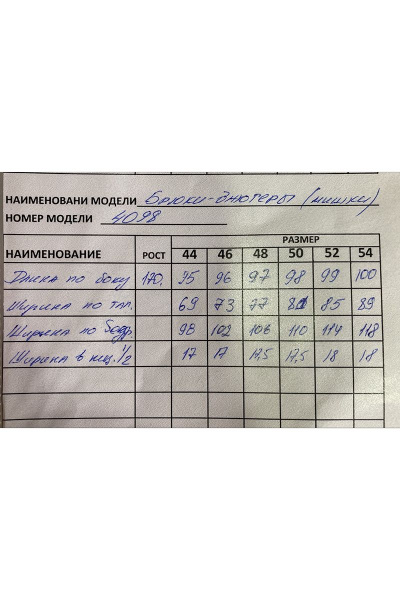 НАИМЕНОВАНИ МОДЕЛИ Брюки-джогеры (мишки)
НОМЕР МОДЕЛИ 4098
РАЗМЕР
НАИМЕНОВАНИЕ РОСТ 44 46 48 50 52 54
Длина по боку 170. 95 96 97 98 99 100
Ширина по тал. 69 73 77 81 85 89
Ширина по бедр 98 102 106 110 114 118
Ширина в низ. 1/2 17 17 17,5 17,5 18 18